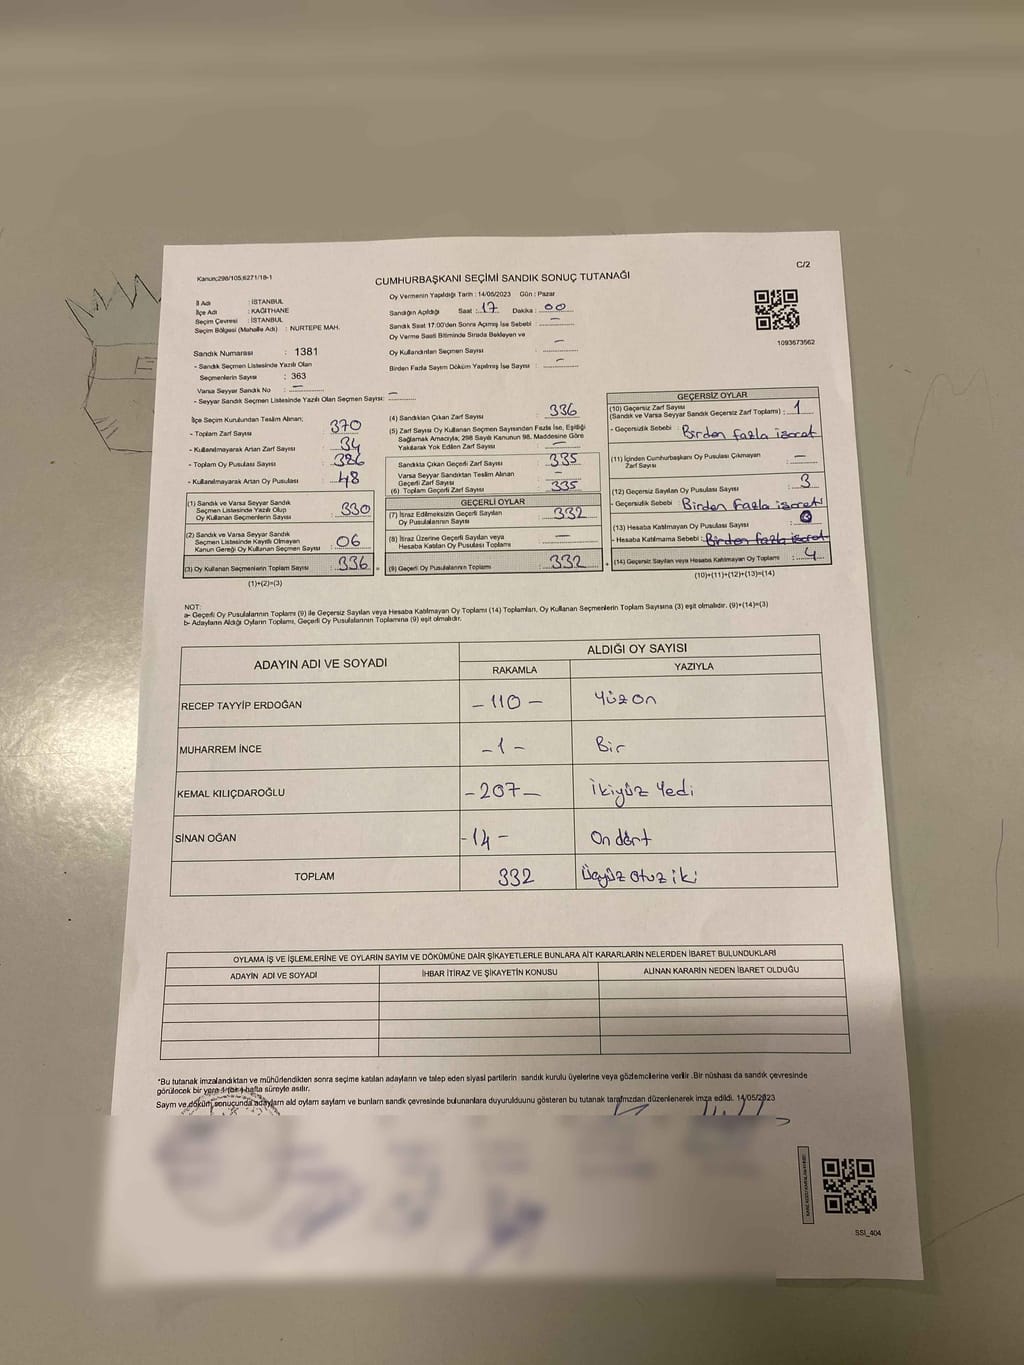 Kanun;298/105,6271/18-1
C/2
CUMHURBAŞKANI SEÇİMİ SANDIK SONUÇ TUTANAĞI
İl Adı : İSTANBUL
İlçe Adı : KAĞITHANE
Seçim Çevresi : İSTANBUL
Seçim Bölgesi (Mahalle Adı) : NURTEPE MAH.
Sandık Numarası : 1381
- Sandık Seçmen Listesinde Yazılı Olan
Seçmenlerin Sayısı : 363
Varsa Seyyar Sandık No : —
- Seyyar Sandık Seçmen Listesinde Yazılı Olan Seçmen Sayısı: —
Oy Vermenin Yapıldığı Tarih : 14/05/2023 Gün : Pazar
Sandığın Açıldığı Saat : 17 Dakika : 00
Sandık Saat 17.00'den Sonra Açılmış İse Sebebi : —
Oy Verme Saati Bitiminde Sırada Bekleyen ve
Oy Kullandırılan Seçmen Sayısı : —
Birden Fazla Sayım Döküm Yapılmış İse Sayısı : —
1093673562
İlçe Seçim Kurulundan Teslim Alınan;
- Toplam Zarf Sayısı : 370
- Kullanılmayarak Artan Zarf Sayısı : 34
- Toplam Oy Pusulası Sayısı :
- Kullanılmayarak Artan Oy Pusulası : 48
(1) Sandık ve Varsa Seyyar Sandık
Seçmen Listesinde Yazılı Olup
Oy Kullanan Seçmenlerin Sayısı : 330
(2) Sandık ve Varsa Seyyar Sandık
Seçmen Listesinde Kayıtlı Olmayan
Kanun Gereği Oy Kullanan Seçmen Sayısı : 06
(3) Oy Kullanan Seçmenlerin Toplam Sayısı : 336
(1)+(2)=(3)
(4) Sandıktan Çıkan Zarf Sayısı : 336
(5) Zarf Sayısı Oy Kullanan Seçmen Sayısından Fazla İse, Eşitliği
Sağlamak Amacıyla; 298 Sayılı Kanunun 98. Maddesine Göre
Yakılarak Yok Edilen Zarf Sayısı : —
Sandıkta Çıkan Geçerli Zarf Sayısı : 335
Varsa Seyyar Sandıktan Teslim Alınan
Geçerli Zarf Sayısı : —
(6) Toplam Geçerli Zarf Sayısı : 335
GEÇERLİ OYLAR
(7) İtiraz Edilmeksizin Geçerli Sayılan
Oy Pusulalarının Sayısı : 332
(8) İtiraz Üzerine Geçerli Sayılan veya
Hesaba Katılan Oy Pusulası Toplamı : —
(9) Geçerli Oy Pusulalarının Toplamı : 332
GEÇERSİZ OYLAR
(10) Geçersiz Zarf Sayısı
(Sandık ve Varsa Seyyar Sandık Geçersiz Zarf Toplamı) : 1
- Geçersizlik Sebebi : Birden fazla işaret
(11) İçinden Cumhurbaşkanı Oy Pusulası Çıkmayan
Zarf Sayısı : —
(12) Geçersiz Sayılan Oy Pusulası Sayısı : 3
- Geçersizlik Sebebi : Birden fazla işaret
(13) Hesaba Katılmayan Oy Pusulası Sayısı :
- Hesaba Katılmama Sebebi : Birden fazla işaret
(14) Geçersiz Sayılan veya Hesaba Katılmayan Oy Toplamı : 4
(10)+(11)+(12)+(13)=(14)
NOT:
a- Geçerli Oy Pusulalarının Toplamı (9) ile Geçersiz Sayılan veya Hesaba Katılmayan Oy Toplamı (14) Toplamları, Oy Kullanan Seçmenlerin Toplam Sayısına (3) eşit olmalıdır. (9)+(14)=(3)
b- Adayların Aldığı Oyların Toplamı, Geçerli Oy Pusulalarının Toplamına (9) eşit olmalıdır.
ADAYIN ADI VE SOYADI ALDIĞI OY SAYISI
RAKAMLA YAZIYLA
RECEP TAYYİP ERDOĞAN - 110 - Yüzon
MUHARREM İNCE - 1 - Bir
KEMAL KILIÇDAROĞLU - 207 - İkiyüz Yedi
SİNAN OĞAN - 14 - On dört
TOPLAM 332 Üçyüz otuz iki
OYLAMA İŞ VE İŞLEMLERİNE VE OYLARIN SAYIM VE DÖKÜMÜNE DAİR ŞİKAYETLERLE BUNLARA AİT KARARLARIN NELERDEN İBARET BULUNDUKLARI
ADAYIN ADI VE SOYADI İHBAR İTİRAZ VE ŞİKAYETİN KONUSU ALINAN KARARIN NEDEN İBARET OLDUĞU
*Bu tutanak imzalandıktan ve mühürlendikten sonra seçime katılan adayların ve talep eden siyasi partilerin sandık kurulu üyelerine veya gözlemcilerine verilir .Bir nüshası da sandık çevresinde
görülecek bir yere 1 (bir ) hafta süreyle asılır.
Sayım ve döküm sonucunda adayların aldı oyların sayıları ve bunların sandık çevresinde bulunanlara duyurulduunu gösteren bu tutanak tarafımızdan düzenlenerek imza edildi. 14/05/2023
SSI_404